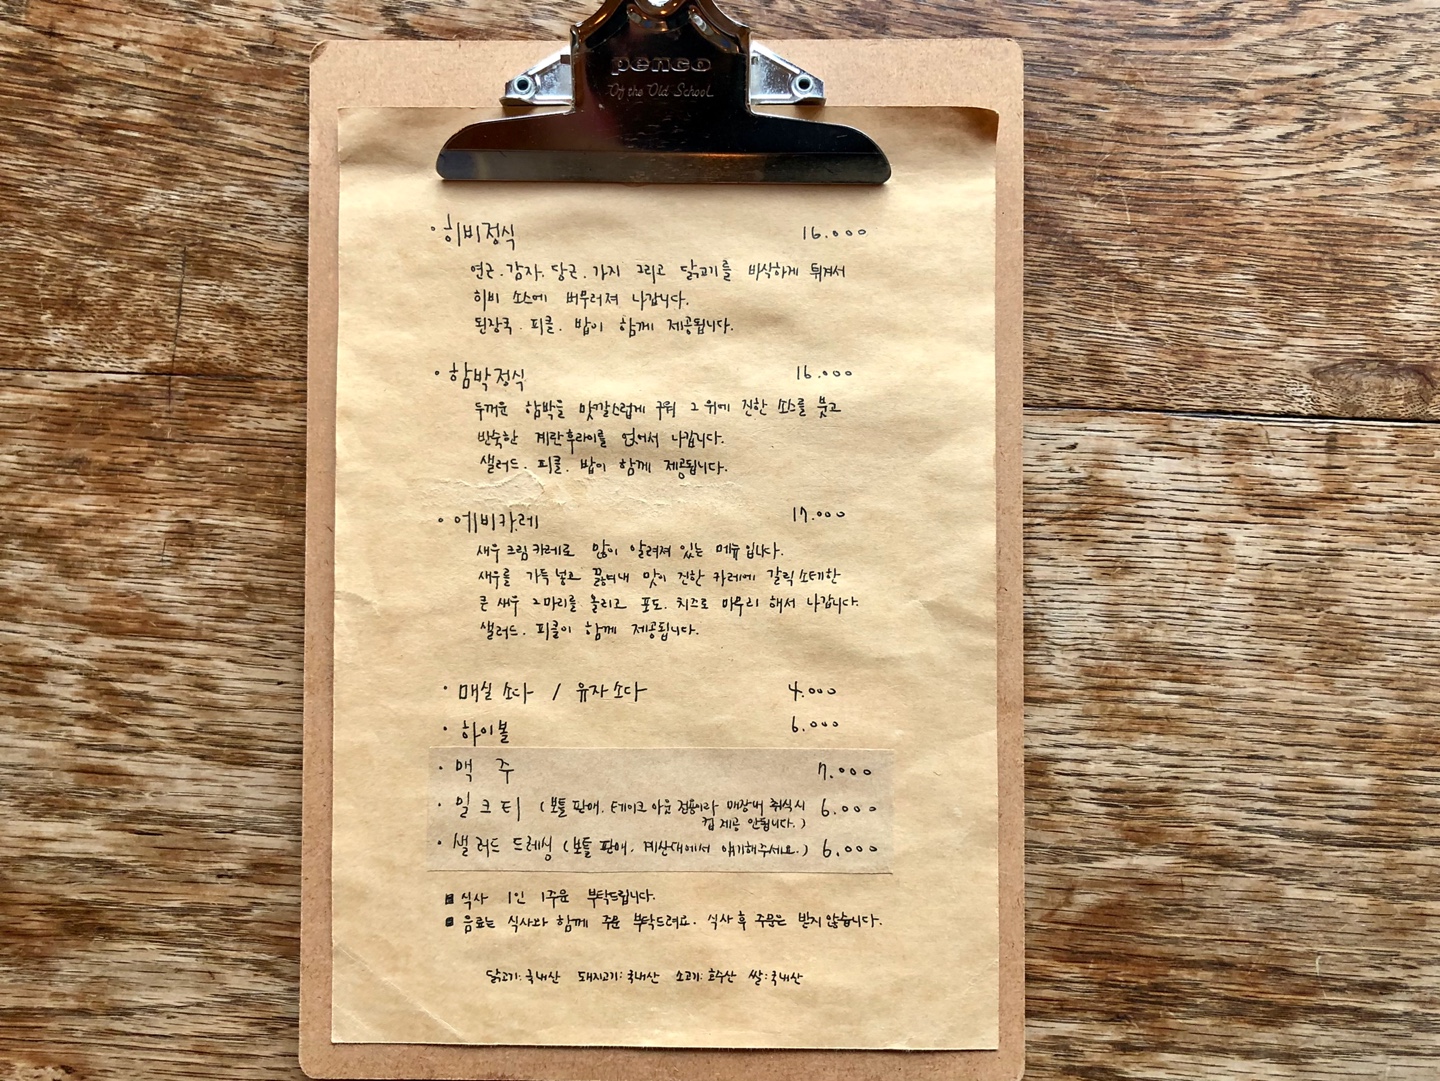 penco
Of the Old School
· 히비정식 16.000
연근. 감자. 당근. 가지 그리고 닭고기를 바삭하게 튀겨서
히비 소스에 버무려져 나갑니다.
된장국. 피클. 밥이 함께 제공됩니다.
· 함박정식 16.000
두꺼운 함박을 맛깔스럽게 구워 그 위에 진한 소스를 붓고
반숙한 계란후라이를 얹어서 나갑니다.
샐러드. 피클. 밥이 함께 제공됩니다.
· 에비카레 17.000
새우 크림 카레로 많이 알려져 있는 메뉴입니다.
새우를 가득 넣고 끓여내 맛이 진한 카레에 갈릭 소테한
큰 새우 2마리를 올리고 포도. 치즈로 마무리 해서 나갑니다.
샐러드. 피클이 함께 제공됩니다.
· 매실 소다 / 유자 소다 4.000
· 하이볼 6.000
· 맥 주 7.000
· 밀 크 티 (보틀 판매. 테이크 아웃 전용이라 매장내 취식시 6.000
컵 제공 안됩니다.)
· 샐러드 드레싱 (보틀 판매. 계산대에서 얘기해주세요.) 6.000
■ 식사 1인 1주문 부탁드립니다.
■ 음료는 식사와 함께 주문 부탁드려요. 식사 후 주문은 받지 않습니다.
닭고기: 국내산 돼지고기: 국내산 소고기: 호주산 쌀: 국내산